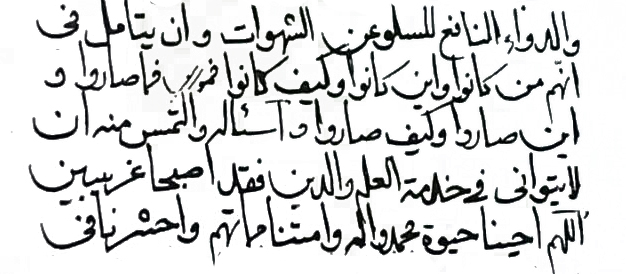 والدواء النافع للسلو عن الشهوات وان يتامل فى
انهم من كانوا واين كانوا وكيف كانوا فما صاروا و
اين صاروا وكيف صاروا و اسئاله والتمس منه ان
لا يتوانى في خدمة العلم والدين فقد اصبحا غريبين
اللهم احينا حيوة محمد واله وامتنا مماتهم واحشرنا فى